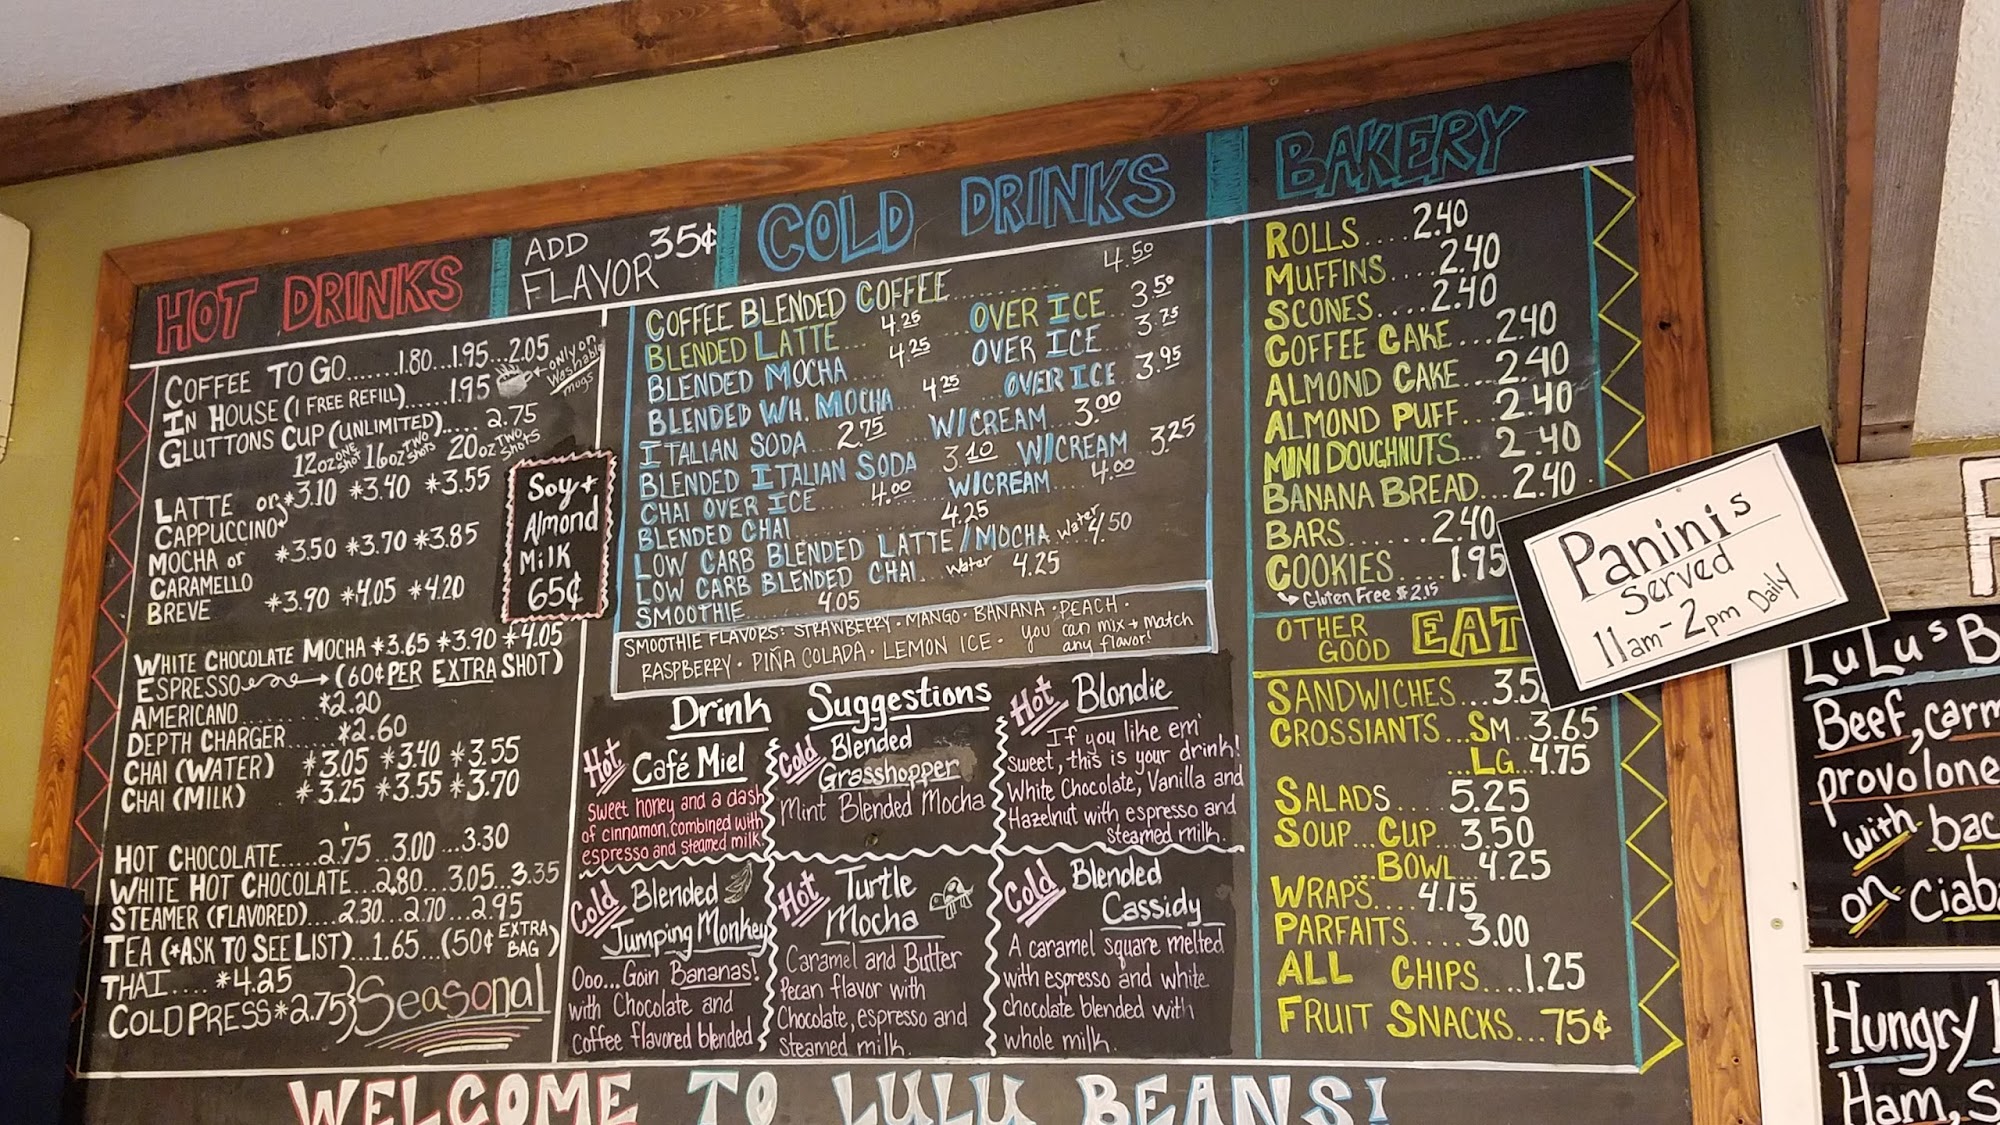 HOT DRINKS
ADD FLAVOR 35¢
COFFEE TO GO......1.80..1.95...2.05
IN HOUSE (1 FREE REFILL)......1.95
←only on washable mugs
GLUTTONS CUP (UNLIMITED)..... 2.75
12oz ONE SHOT 16oz TWO SHOTS 20oz TWO SHOTS
LATTE or *3.10 *3.40 *3.55
CAPPUCCINO
MOCHA or *3.50 *3.70 *3.85
CARAMELLO
BREVE *3.90 *4.05 *4.20
Soy +
Almond
Milk
65¢
WHITE CHOCOLATE MOCHA *3.65 *3.90 *4.05
ESPRESSO → (60¢ PER EXTRA SHOT)
AMERICANO........ *2.20
DEPTH CHARGER.... *2.60
CHAI (WATER) *3.05 *3.40 *3.55
CHAI (MILK) *3.25 *3.55 *3.70
HOT CHOCOLATE....2.75...3.00 ...3.30
WHITE HOT CHOCOLATE...2.80...3.05...3.35
STEAMER (FLAVORED)....2.30...2.70 ...2.95
TEA (*ASK TO SEE LIST)..1.65...(50¢ EXTRA BAG)
THAI.... *4.25
COLD PRESS *2.75} Seasonal
COLD DRINKS
COFFEE BLENDED COFFEE............ 4.50
BLENDED LATTE... 4.25 OVER ICE 3.50
BLENDED MOCHA 4.25 OVER ICE 3.75
BLENDED WH. MOCHA... 4.25 OVER ICE 3.95
ITALIAN SODA... 2.75 W/CREAM... 3.00
BLENDED ITALIAN SODA 3.10 W/CREAM 3.25
CHAI OVER ICE 4.00 W/CREAM 4.00
BLENDED CHAI 4.25
LOW CARB BLENDED LATTE/MOCHA water 4.50
LOW CARB BLENDED CHAI... water 4.25
SMOOTHIE........ 4.05
SMOOTHIE FLAVORS: STRAWBERRY · MANGO · BANANA · PEACH ·
RASPBERRY · PIÑA COLADA · LEMON ICE · you can mix + match any flavor!
Drink Suggestions
Hot Café Miel
Sweet honey and a dash
of cinnamon. Combined with
espresso and steamed milk.
Cold Blended
Grasshopper
Mint Blended Mocha
Hot Blondie
If you like em'
sweet, this is your drink!
White Chocolate, Vanilla and
Hazelnut with espresso and
steamed milk.
Cold Blended
Jumping Monkey
Ooo...Goin Bananas!
with Chocolate and
coffee flavored blended
Hot Turtle
Mocha
Caramel and Butter
Pecan flavor with
Chocolate, espresso and
steamed milk.
Cold Blended
Cassidy
A caramel square melted
with espresso and white
chocolate blended with
whole milk.
BAKERY
ROLLS.... 2.40
MUFFINS.... 2.40
SCONES.... 2.40
COFFEE CAKE... 2.40
ALMOND CAKE... 2.40
ALMOND PUFF... 2.40
MINI DOUGHNUTS... 2.40
BANANA BREAD...2.40
BARS...... 2.40
COOKIES....1.95
Gluten Free $2.15
OTHER GOOD EAT
SANDWICHES...3.5
CROSSIANTS ...SM..3.65
...LG..4.75
SALADS.... 5.25
SOUP...CUP..3.50
...BOWL..4.25
WRAPS.... 4.15
PARFAITS.... 3.00
ALL CHIPS....1.25
FRUIT SNACKS...75¢
Paninis
Served
11am-2pm Daily
WELCOME TO LULU BEANS!
LuLus B
Beef, carm
provolone
with bac
on Ciaba
Hungry
Ham, S